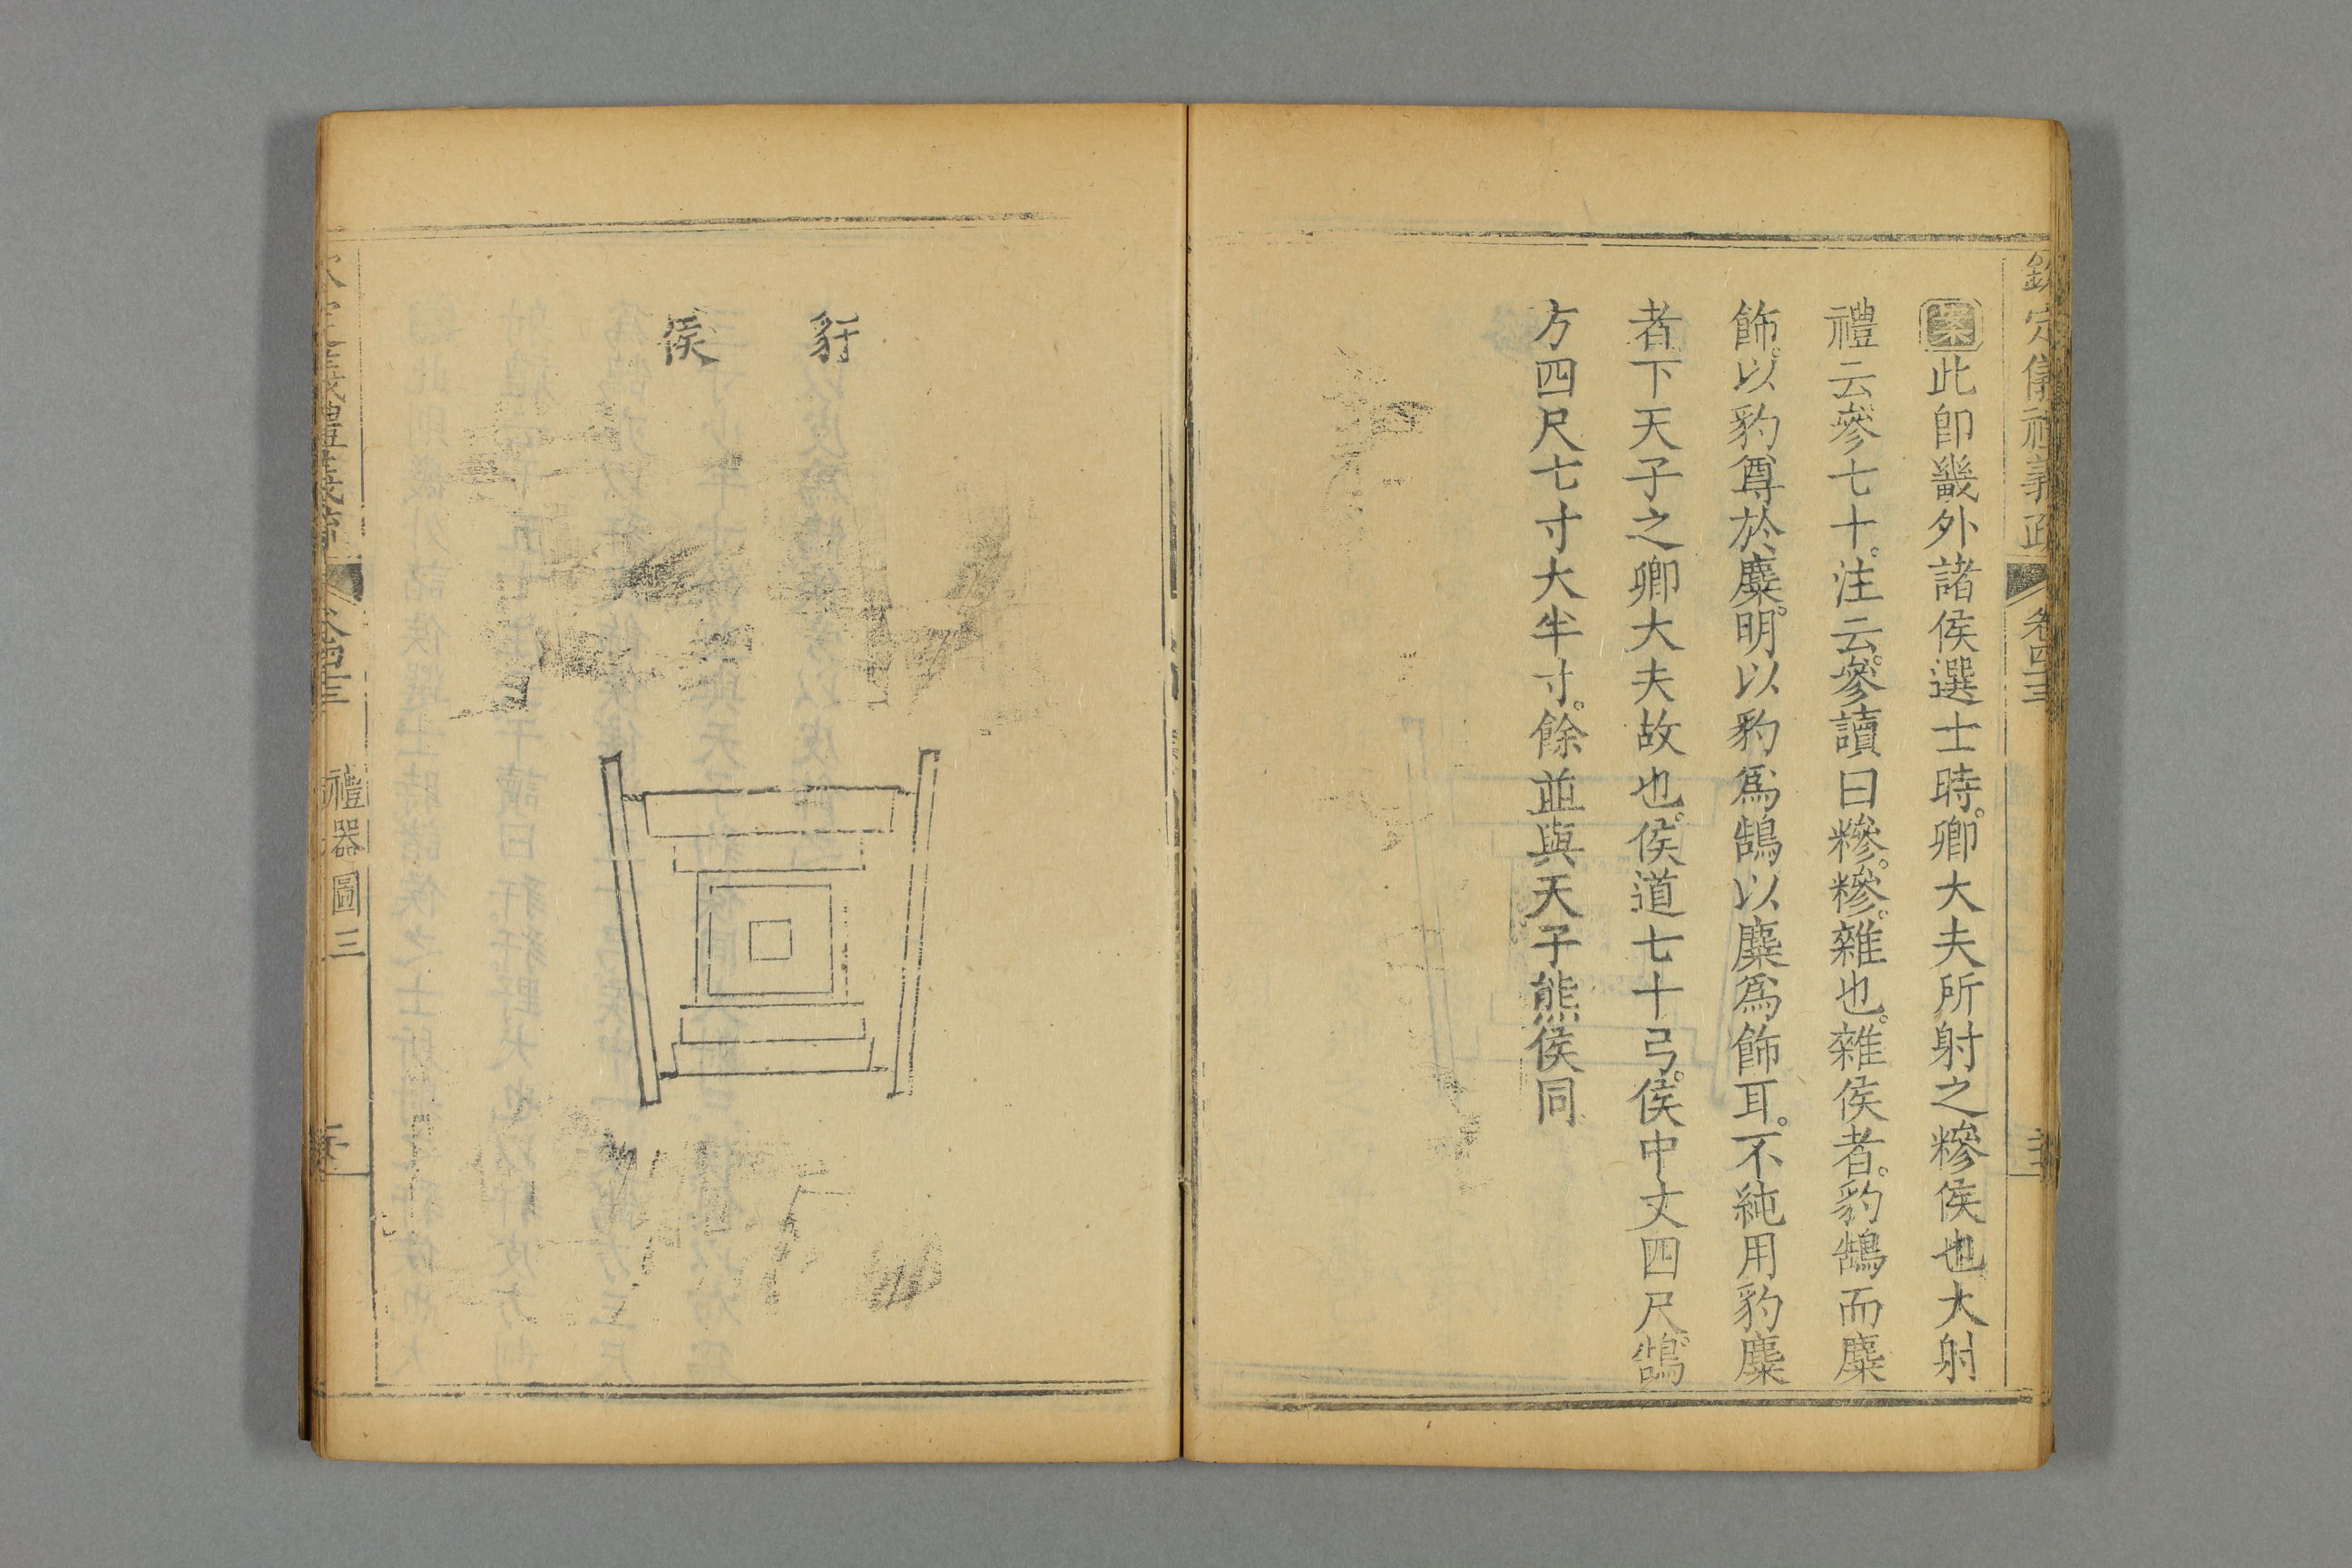 欽定儀禮義疏 卷四三
案此卽畿外諸侯選士時。卿大夫所射之糝侯也大射
禮云參七十。注云。參讀曰糝。糝。雜也。雜侯者。豹鵠而麋
飾。以豹尊於麋。明以豹爲鵠以麋爲飾耳。不純用豹麋
者下天子之卿大夫故也。侯道七十弓。侯中丈四尺。鵠
方四尺七寸大半寸。餘並與天子熊侯同
豻
侯
禮器圖三